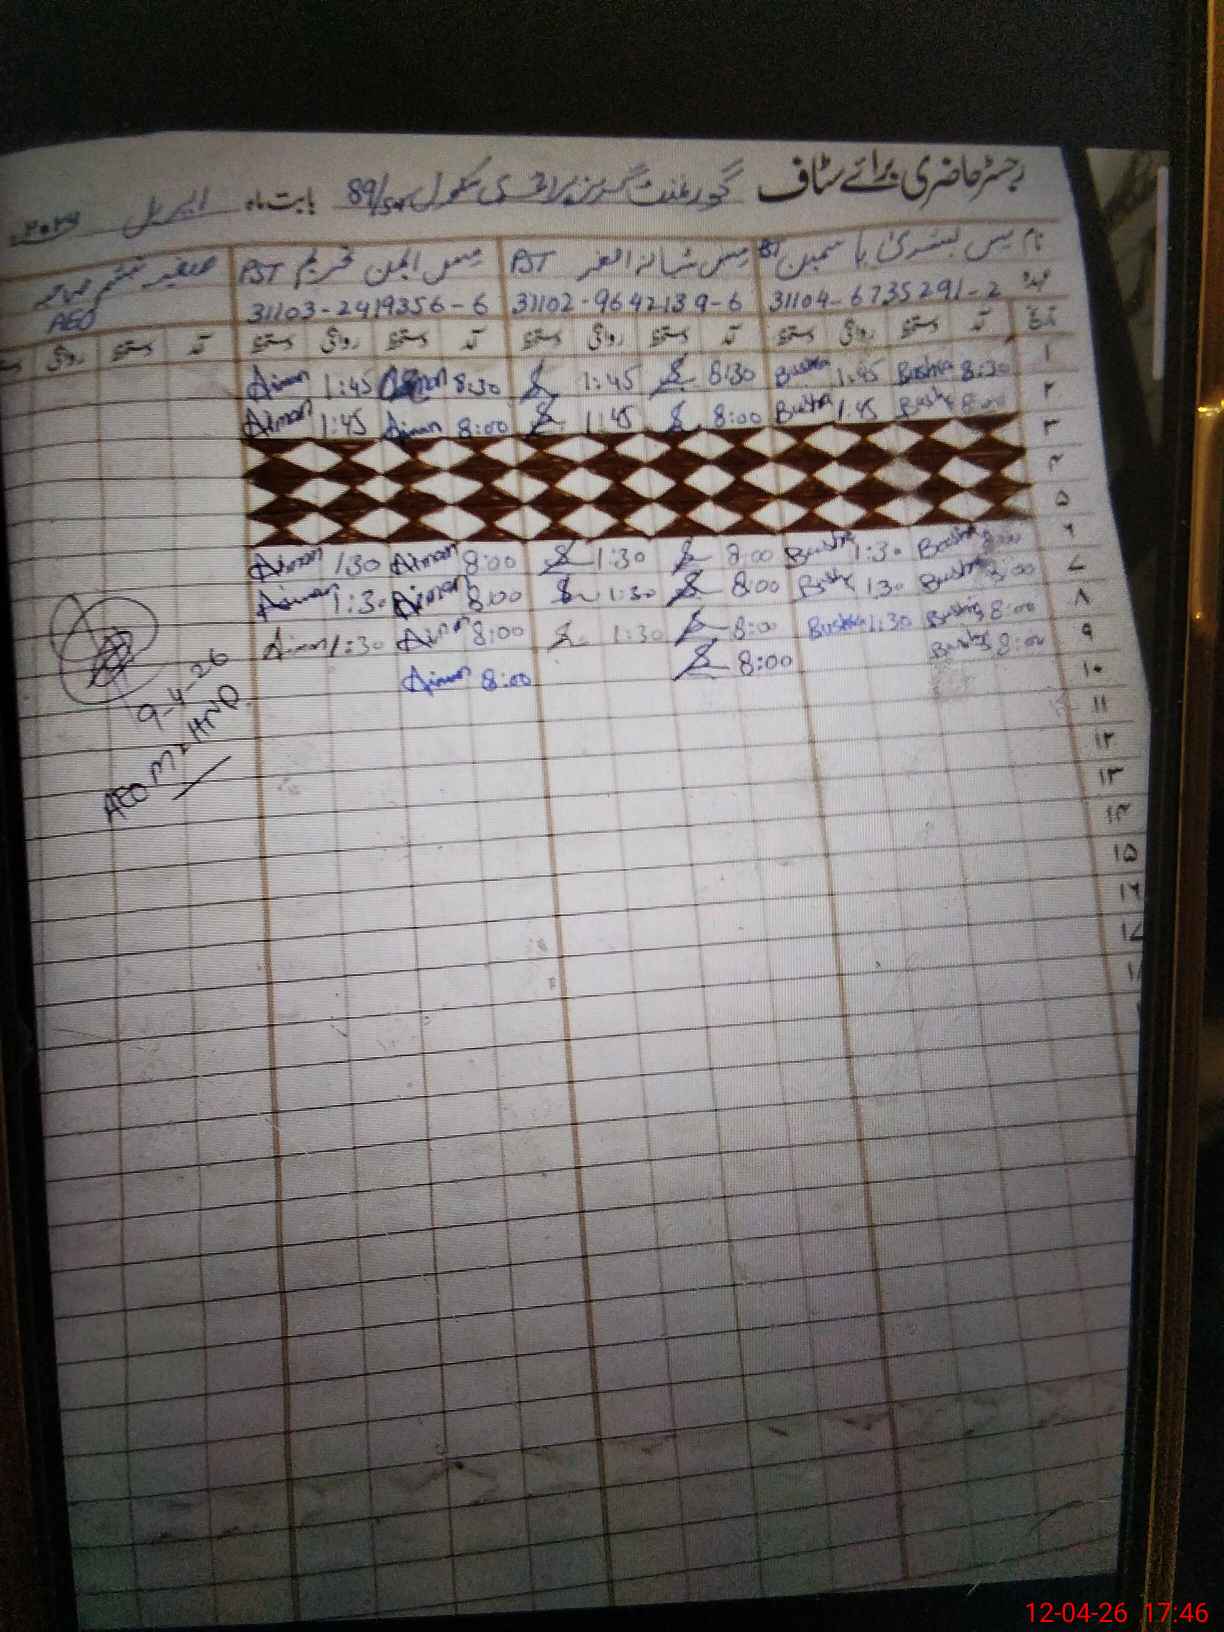 رجسٹر حاضری برائے سٹاف گورنمنٹ گرلز پرائمری سکول 89/ بابت ماہ اپریل
نام مس بشریٰ یاسمین مس PST مس PST AEO
عہدہ 31104-6735291-2 31102-9642139-6 31103-2419356-6
تاریخ آمد دستخط روانگی دستخط آمد دستخط روانگی دستخط آمد دستخط روانگی دستخط آمد دستخط روانگی
۱ 8:30 Bushra 1:45 Bushra 8:30 1:45 8:30 Aiman 1:45 Aiman
۲ 8:00 Bushra 1:45 Bushra 8:00 1:45 8:00 Aiman 1:45 Aiman
۳
۴
۵
۶ 8:00 Bushra 1:30 Bushra 8:00 1:30 8:00 Aiman 1:30 Aiman
۷ 8:00 Bushra 1:30 Bushra 8:00 1:30 8:00 Aiman 1:30 Aiman
۸ 8:00 Bushra 1:30 Bushra 8:00 1:30 8:00 Aiman 1:30 Aiman
۹ 8:00 Bushra 8:00 8:00 Aiman
۱۰
9-4-26
AEO
۱۱
۱۲
۱۳
۱۴
۱۵
۱۶
۱۷
12-04-26 17:46